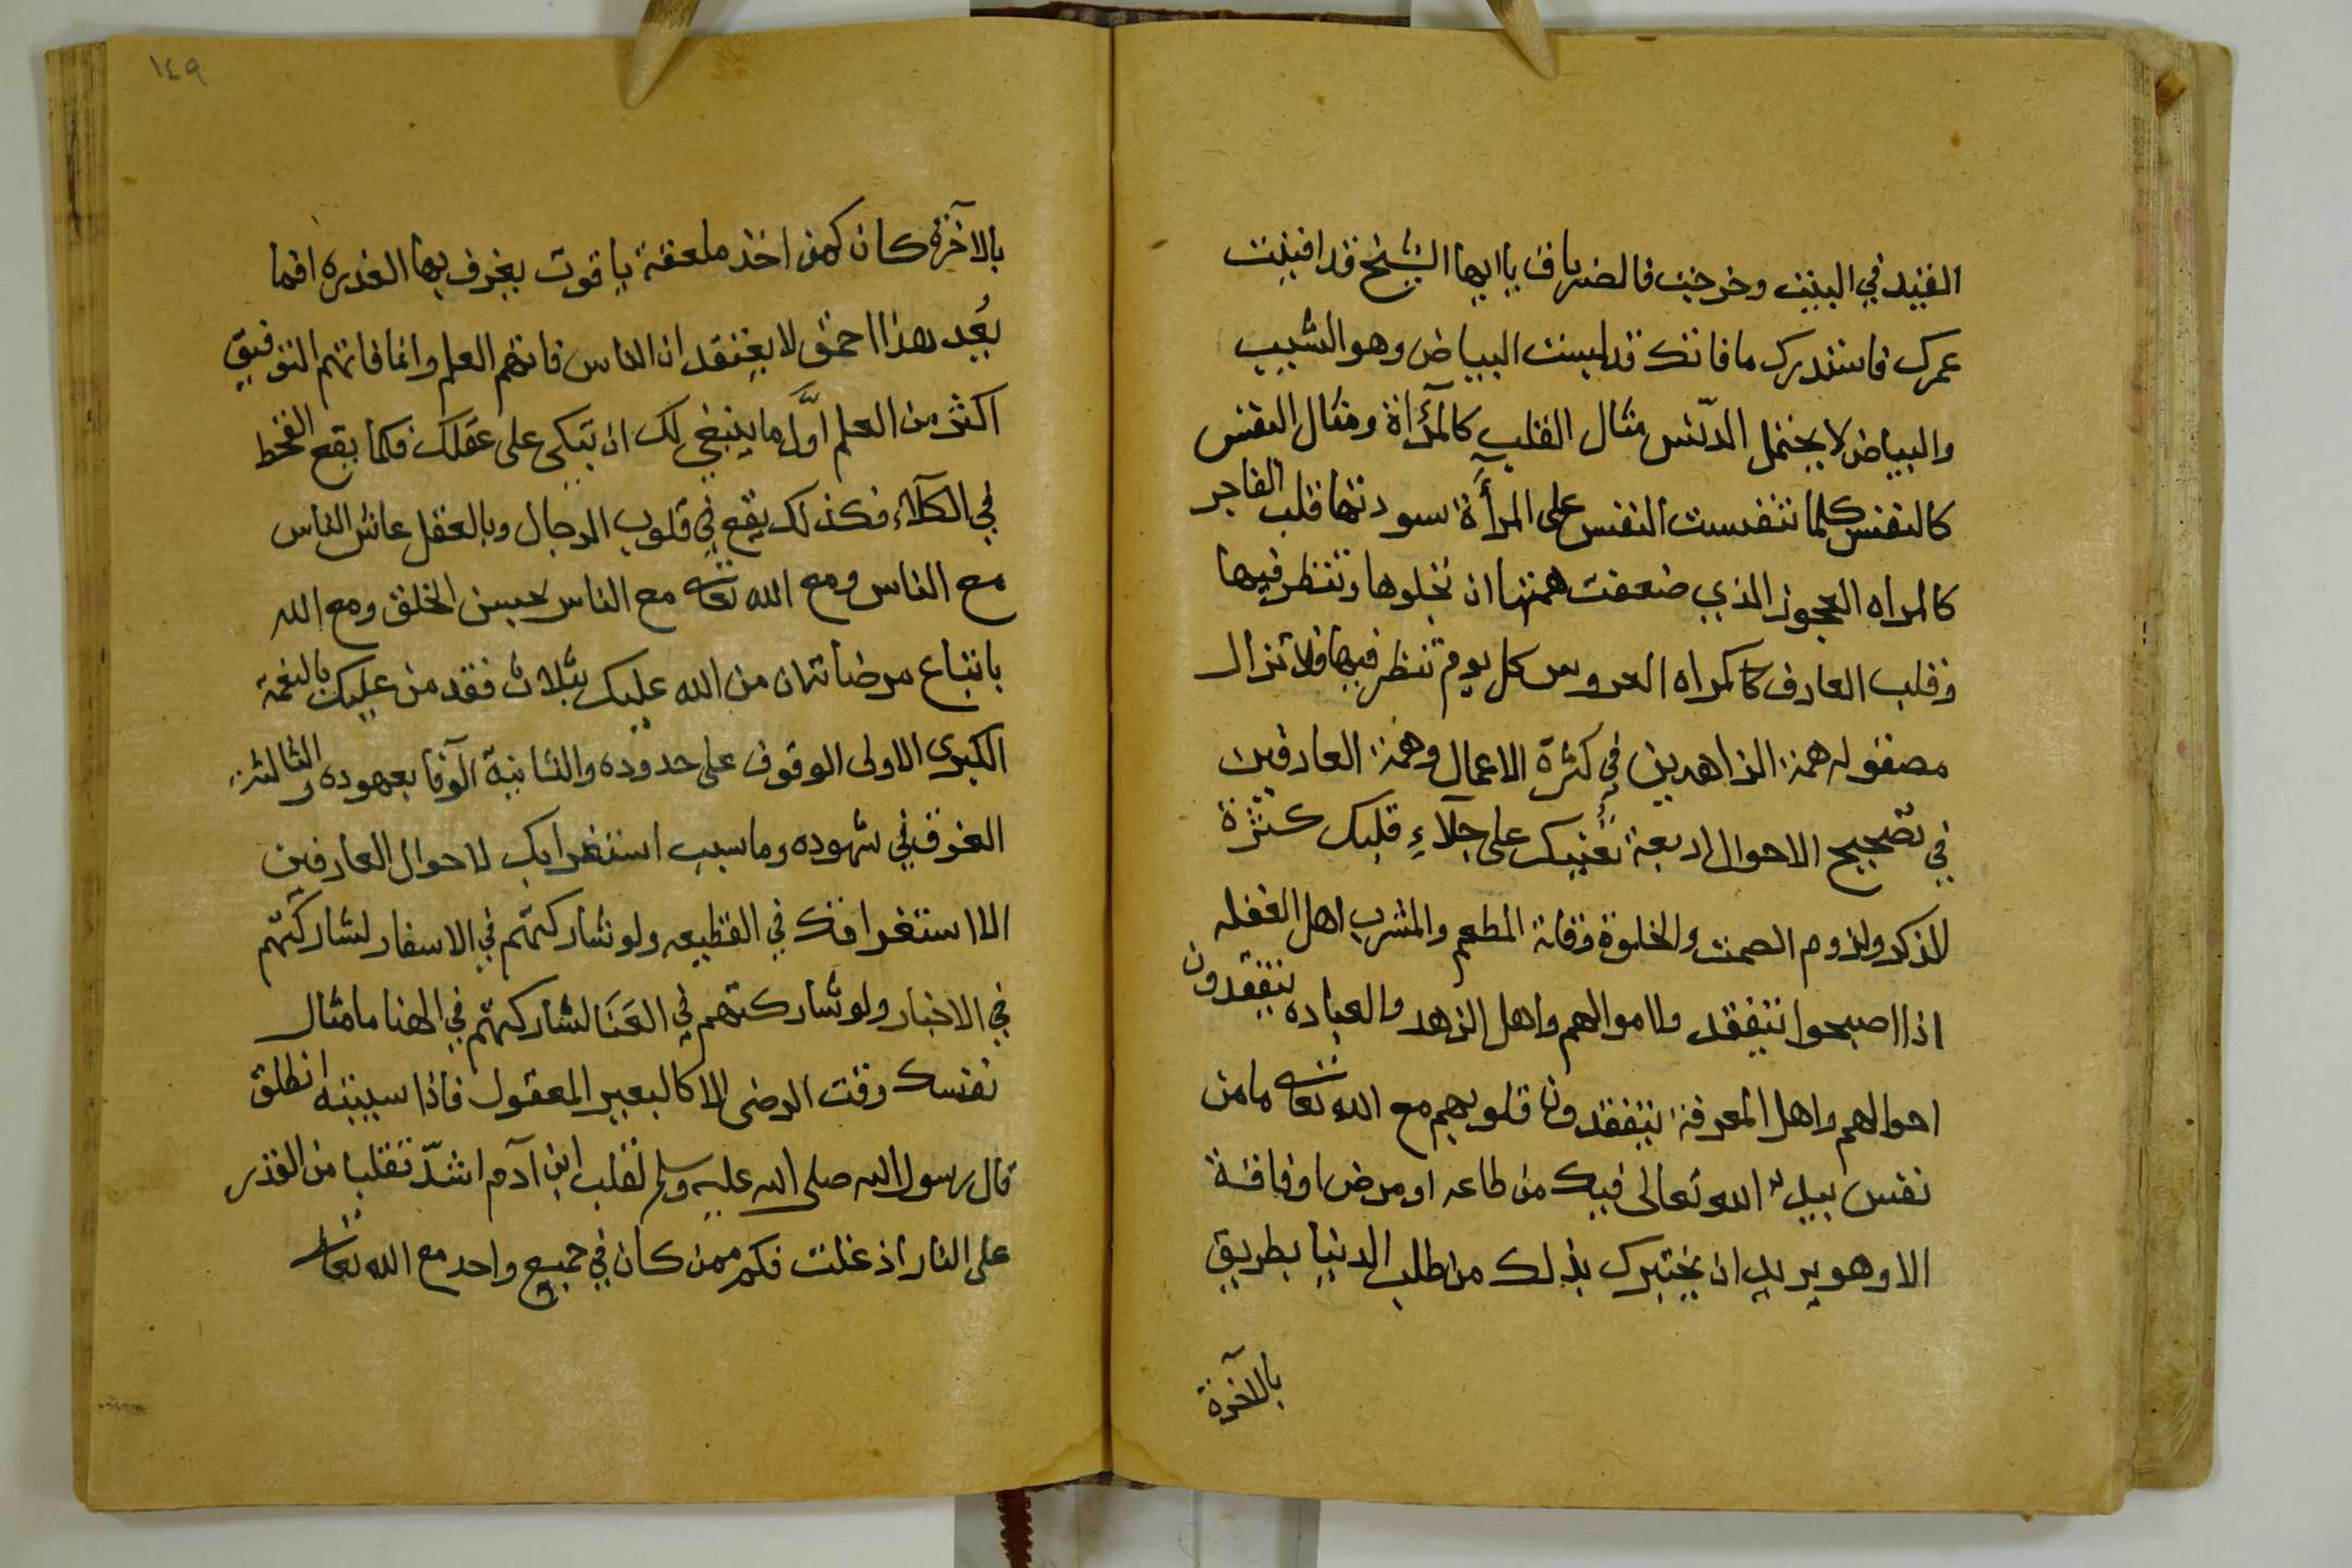 الفيد في البيت وخرجت فالضراف يا ايها الشيخ قد افنيت
عمرك فاستدرك ما فاتك قد لبست البياض وهو الشيب
والبياض لا يحتمل الدّنس مثال القلب كالمرآة ومثال النفس
كالنفس كلما تنفست النفس على المرأة سودتها قلب الفاجر
كالمراه العجوز الذي ضعفت همتها ان تجلوها وتنظر فيها
وقلب العارف كالمراه العروس كل يوم تنظر فيها فلا تزال
مصقوله همة الزاهدين في كثرة الاعمال وهمة العارفين
في تصحيح الاحوال اربعة تعينك على جلاء قلبك كثرة
الذكر ولزوم الصمت والخلوة وقلة المطعم والمشرب اهل الغفله
اذا اصبحوا يتفقدوا اموالهم واهل الزهد والعباده يتفقدون
احوالهم واهل المعرفة يتفقدون قلوبهم مع الله تعالى ما من
نفس يبديه الله تعالى فيك من طاعه او مرض او فاقة
الا وهو يريد ان يختبرك بذلك من طلب الدنيا بطريق
بالآخرة
١٤٩
بالآخرة كان كمن اخذ ملعقة ياقوت يغرف بها العذره افما
يُعد هذا احمق لا يعتقد ان الناس فاتهم العلم وانما فاتهم التوفيق
اكثر من العلم اوّل ما ينبغي لك ان تبكي على عقلك فكما يقع القحط
في الكلاء فكذلك يقع في قلوب الرجال وبالعقل عاش الناس
مع الناس ومع الله تعالى مع الناس بحسن الخلق ومع الله
باتباع مرضاته ان من الله عليك بثلاث فقد من عليك بالنعمة
الكبرى الاولى الوقوف على حدوده والثانية الوفا بعهوده والثالثة
الغرق في شهوده وما سبب استغرابك لاحوال العارفين
الا استغراقك في القطيعه ولو شاركتهم في الاسفار لشاركتهم
في الاخبار ولو شاركتهم في العَنَا لشاركتهم في الهنا ما مثال
نفسك وقت الرضى الا كالبعير المعقول فاذا سيبته انطلق
قال رسول الله صلى الله عليه وسلم لقلب ابن آدم اشدّ تقلبا من القدر
على النار اذ غلت فكم ممن كان في جميع واحد مع الله تعالى